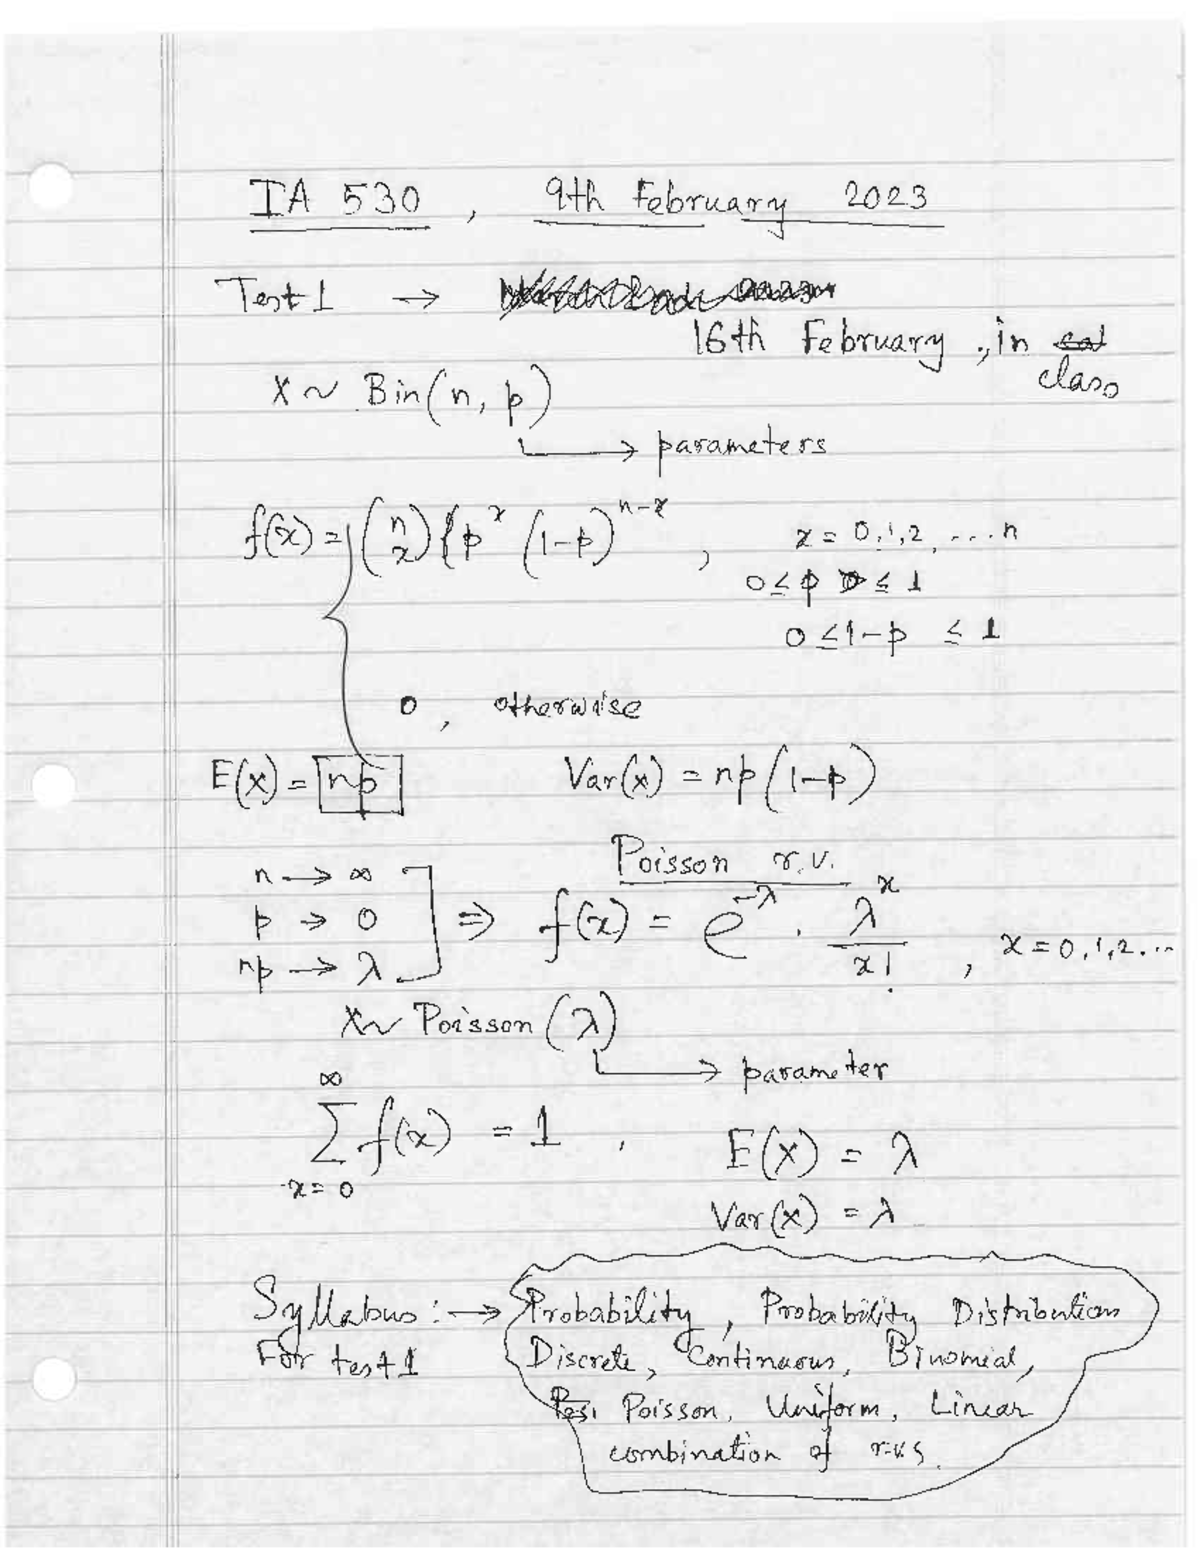 IA 530 , 9th February 2023
Test 1 →
16th February , in
class
X ~ Bin(n, p)
→ parameters
f(x) = { (n x) { p^x (1-p)^{n-x} , x = 0,1,2, ... n
0 ≤ p ≤ 1
0 ≤ 1-p ≤ 1
0 , otherwise
E(x) = np Var(x) = np(1-p)
Poisson r.v.
n → ∞
p → 0 ⇒ f(x) = e^{-λ} . λ^x / x! , x = 0,1,2...
np → λ
X ~ Poisson (λ)
→ parameter
∞
Σ f(x) = 1 , E(X) = λ
x = 0
Var(x) = λ
Syllabus : → Probability, Probability Distribution
For test 1 Discrete, Continuous, Binomial,
Poisson, Uniform, Linear
combination of r.v.s.